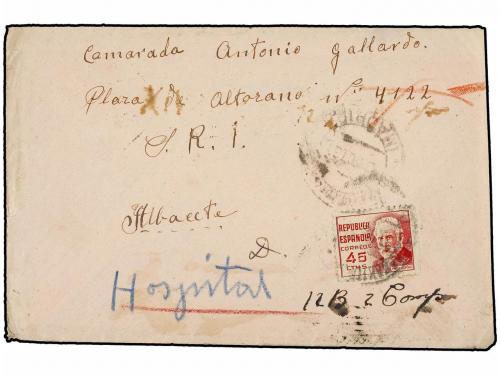 Camarada Antonio Gallardo.
Plaza de Altozano nº 4122
S. R. I.
Albacete
D.
REPUBLICA
ESPAÑOLA
CORREOS
45
CTMS
Hospital
12 B 2 Comp